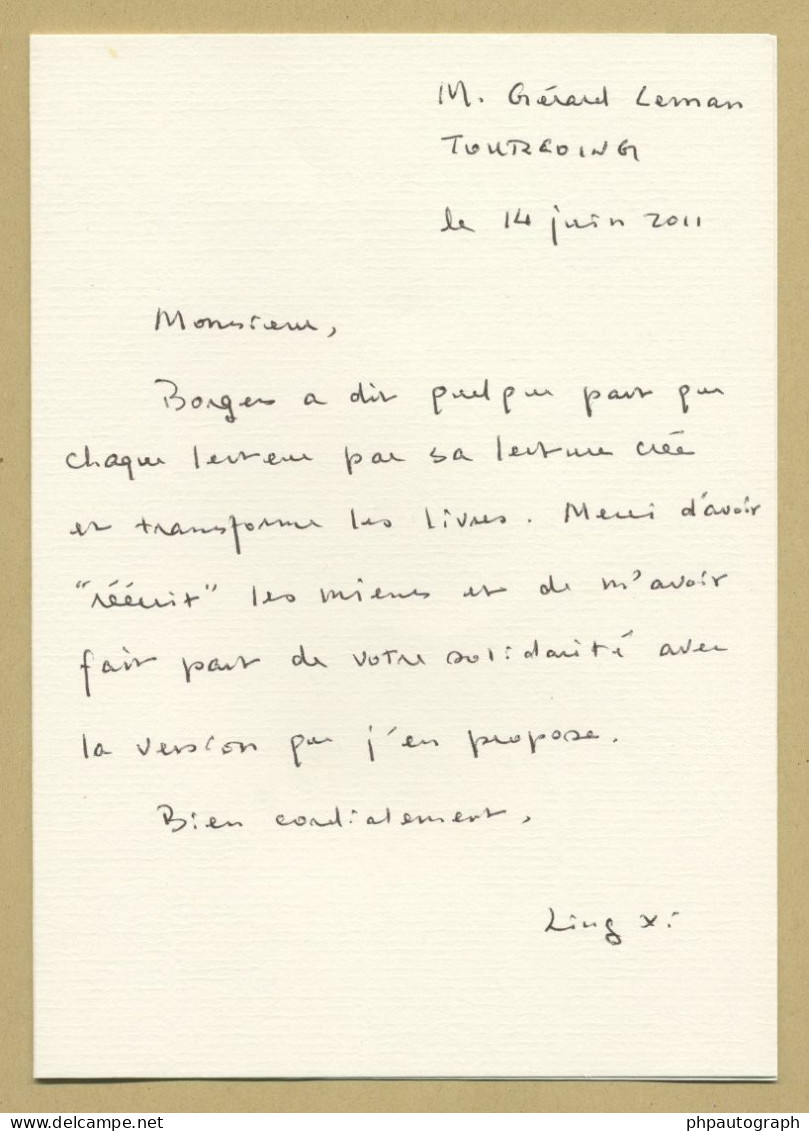 M. Gérard Leman
TOURCOING
le 14 juin 2011
Monsieur,
Borges a dit quelque part que
chaque lecteur par sa lecture crée
et transforme les livres. Merci d'avoir
"réécrit" les miens et de m'avoir
fait part de votre solidarité avec
la version que j'en propose.
Bien cordialement,
Ling Xi
delcampe.net
phpautograph